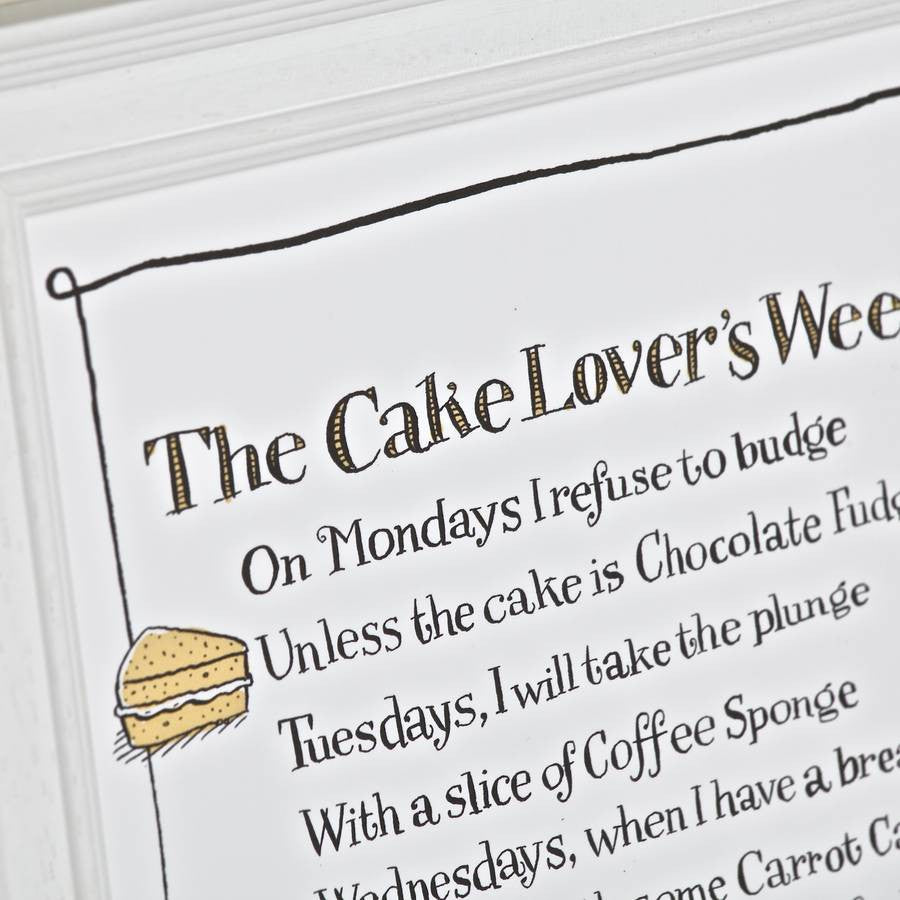 The Cake Lover's Wee
On Mondays I refuse to budge
Unless the cake is Chocolate Fudg
Tuesdays, I will take the plunge
With a slice of Coffee Sponge
Wednesdays, when I have a brea
some Carrot Ca